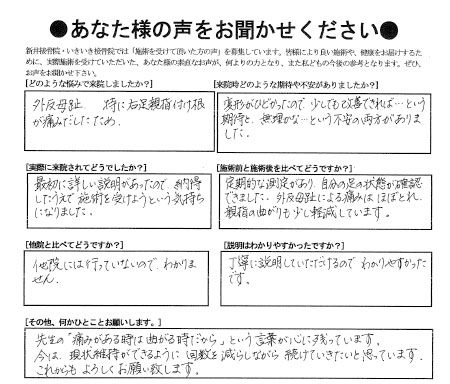 ●あなた様の声をお聞かせください●
新井接骨院・いきいき接骨院では「施術を受けて頂いた方の声」を募集しています。皆様により良い施術や、健康をお届けするた
めに、実際施術を受けていただいた、あなた様の素直なお声が、何よりの力となり、また私どもの今後の参考となります。ぜひ、
お声をお聞かせ下さい。
[どのような悩みで来院しましたか?]
外反母趾 特に右足親指付け根
が痛みだしたため.
[来院時どのような期待や不安がありましたか?]
変形がひどかったので 少しでも改善できれば…という
期待と、無理かな…という不安の両方がありま
した.
[実際に来院されてどうでしたか?]
最初に詳しい説明があったので、納得
したうえで 施術を受けようという気持ち
になりました.
[施術前と施術後を比べてどうですか?]
定期的な測定があり、自分の足の状態が確認
できました. 外反母趾による痛みは ほぼとれ、
親指の曲がりも少し軽減しています.
[他院と比べてどうですか?]
他院には行っていないので、わかりま
せん.
[説明はわかりやすかったですか?]
丁寧に説明していただけるので わかりやすかった
です.
[その他、何かひとことお願いします。]
先生の「痛みがある時は 曲がる時だから」という言葉が心に残っています.
今は、現状維持ができるように 回数を減らしながら 続けていきたいと思っています.
これからも よろしくお願い致します.